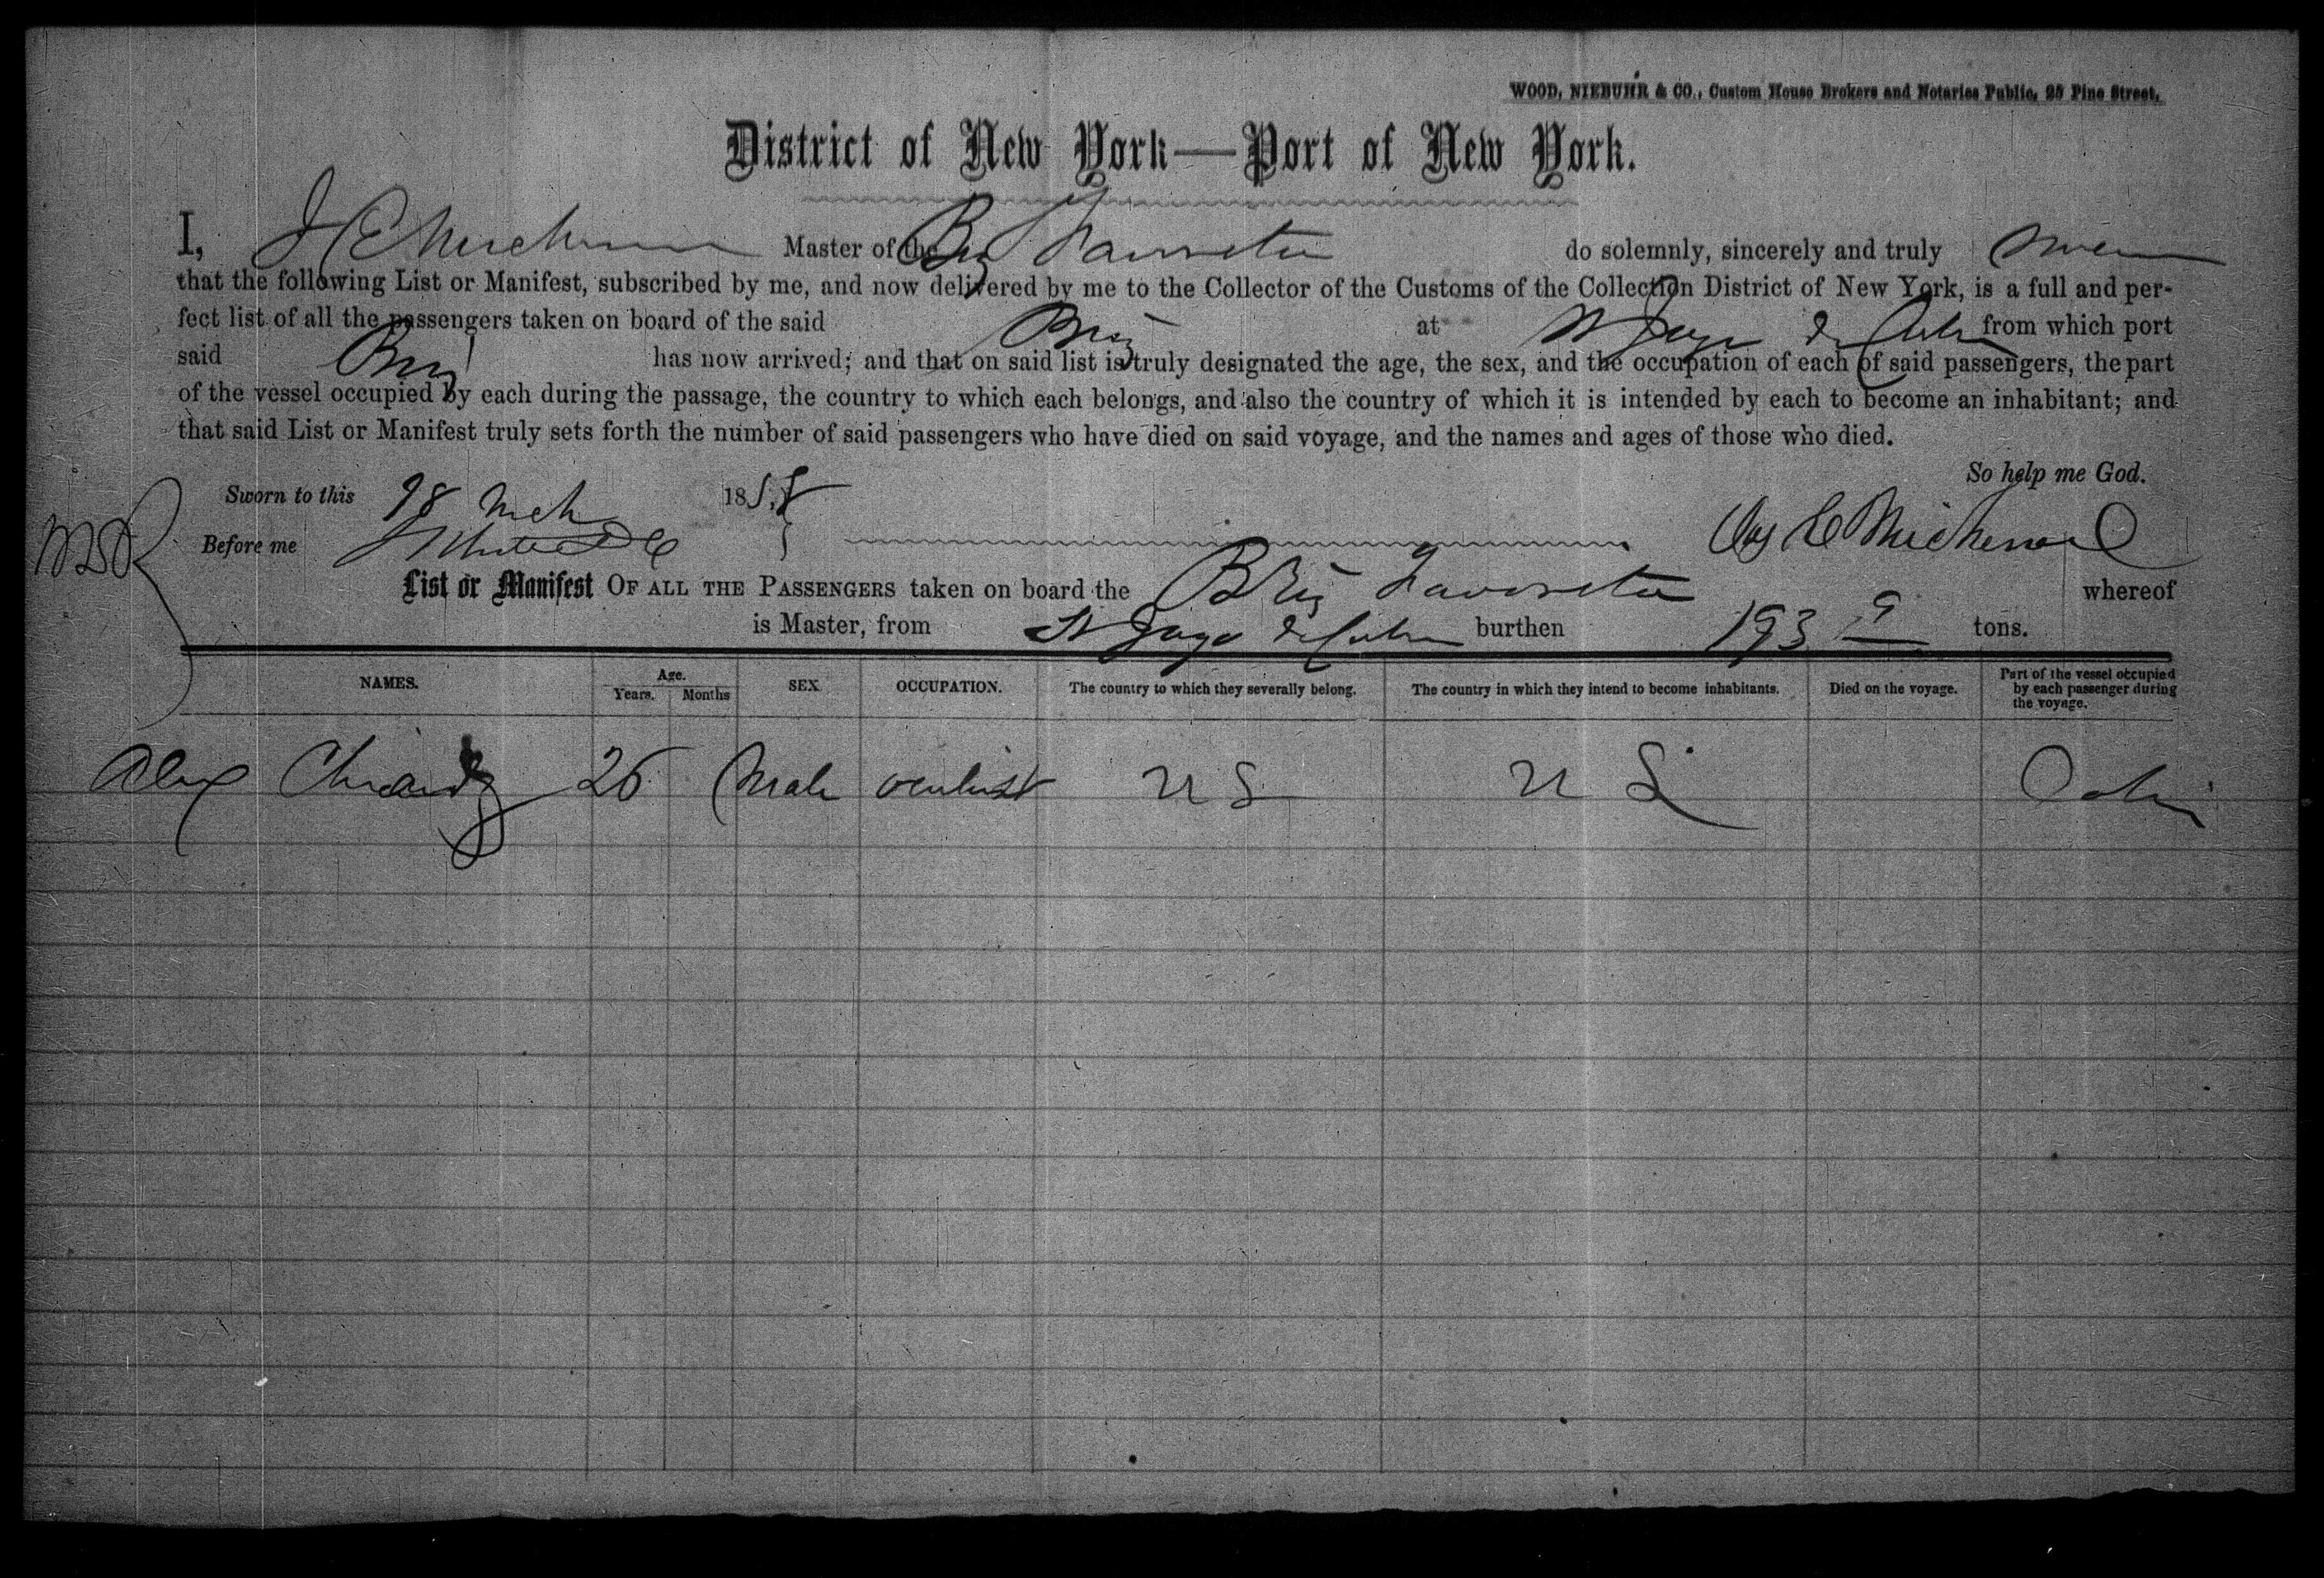 WOOD, NIEBUHR & CO., Custom House Brokers and Notaries Public, 25 Pine Street.
District of New York—Port of New York.
I, J C Master of the Brig do solemnly, sincerely and truly swear
that the following List or Manifest, subscribed by me, and now delivered by me to the Collector of the Customs of the Collection District of New York, is a full and per-
fect list of all the passengers taken on board of the said Brig at St Jago de Cuba from which port
said Brig has now arrived; and that on said list is truly designated the age, the sex, and the occupation of each of said passengers, the part
of the vessel occupied by each during the passage, the country to which each belongs, and also the country of which it is intended by each to become an inhabitant; and
that said List or Manifest truly sets forth the number of said passengers who have died on said voyage, and the names and ages of those who died.
So help me God.
Sworn to this 18 Mch 1858
Before me
List or Manifest OF ALL THE PASSENGERS taken on board the Brig whereof
is Master, from St Jago de Cuba burthen 193 tons.
NAMES. Age. Years. Months SEX. OCCUPATION. The country to which they severally belong. The country in which they intend to become inhabitants. Died on the voyage. Part of the vessel occupied by each passenger during the voyage.
Alex 26 Male oculist U S U S Cabin